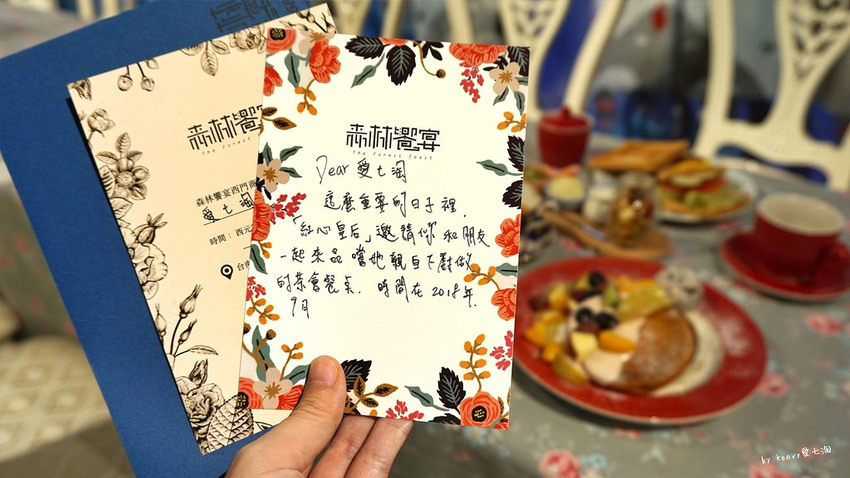 森林饗宴
森林饗宴西門
愛七淘
時間：西元
台南
森林饗宴
the forest feast
Dear 愛七淘
這麼重要的日子裡，
「紅心皇后」邀請你和朋友
一起來品嚐她親自下廚做
的茶會餐桌．時間在2018年．
9月
by keavy愛七淘